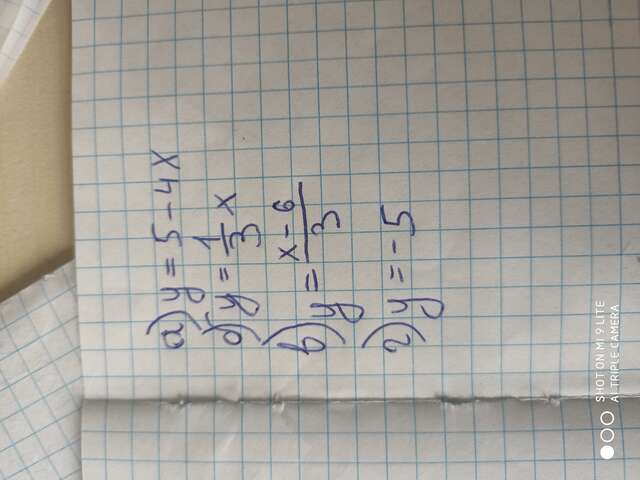 а) y = 5 - 4x
б) y = 1/3 x
в) y = x - 6 / 3
г) y = -5
SHOT ON MI 9 LITE
AI TRIPLE CAMERA